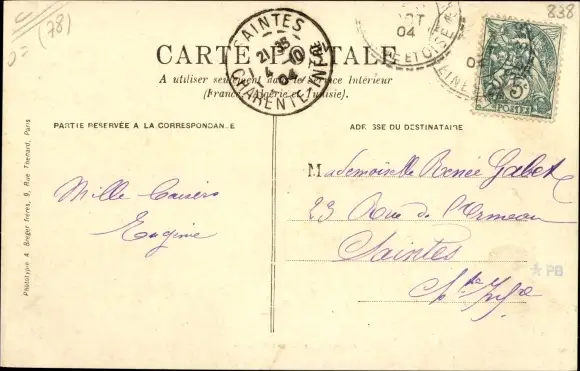 (78)
838
SAINTES
21 35
4 10
04
CHARENTE-INFRE
OCT
04
SEINE ET OISE
5c
POSTES
CARTE POSTALE
A utiliser seulement dans le Service Intérieur
(France, Algérie et Tunisie).
PARTIE RÉSERVÉE A LA CORRESPONDANCE
ADRESSE DU DESTINATAIRE
Mille Baisers
Eugène
Mademoiselle Renée Gabet
23 Rue de l'Ormeau
Saintes
Chte Infre
Phototypie A. Breger frères, 9, Rue Thenard, Paris
PB